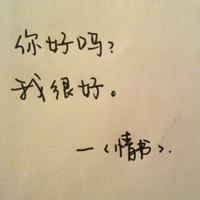 你好吗？
我很好。
—<情书>.